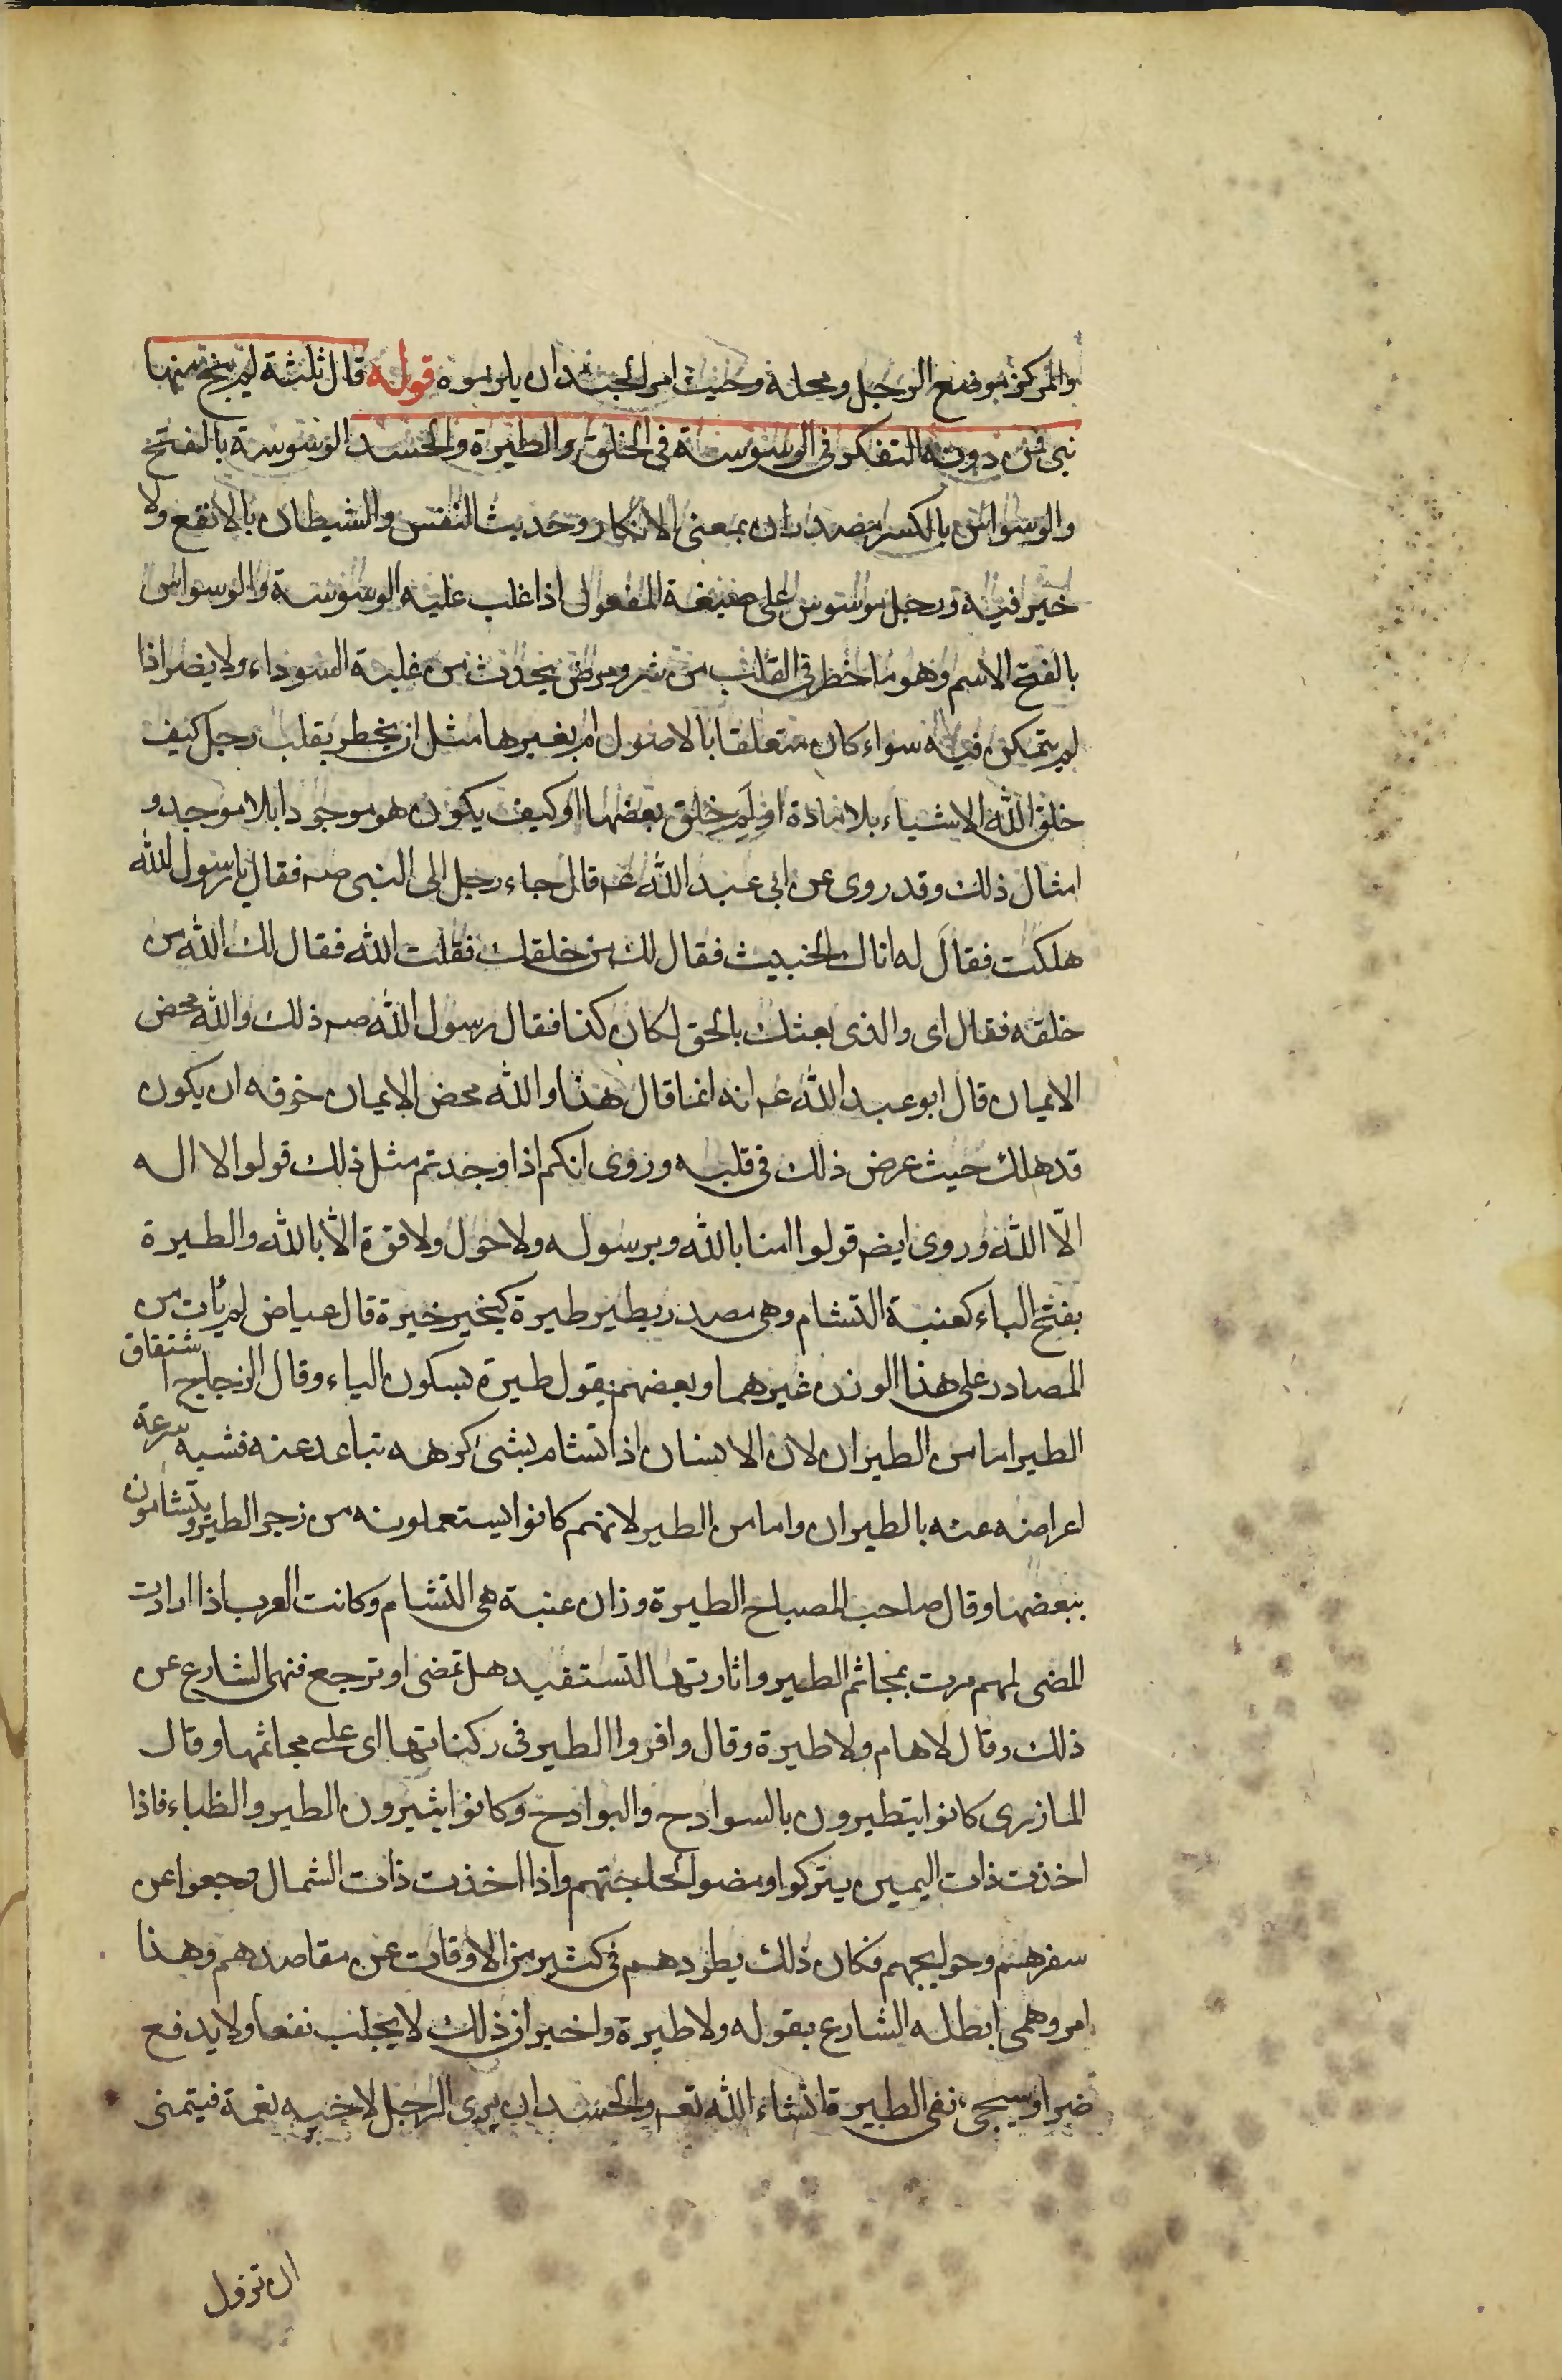 والمركز موضع الرجل ومحله وحيث امر الجند ان يلزموه قوله قال ثلثة لم ينج منها
نبى فمن دونه التفكر فى الوسوسة فى الخلق والطيرة والحسد الوسوسة بالفتح
والوسواس بالكسر مصدران بمعنى الافكار وحديث النفس والشيطان بالا نفع ولا
خير فيه ورجل موسوس على صيغة المفعول اذا غلب عليه الوسوسة والوسواس
بالفتح الاسم وهو ما خطر فى القلب من شر ومرض يحدث من غلبة السوداء ولا يضر اذا
لم يتمكن فيه سواء كان متعلقا بالاصول ام بغيرها مثل ان يخطر بقلب رجل كيف
خلق الله الاشياء بلا مادة او لم خلق بعضها او كيف يكون هو موجودا بلا موجد و
امثال ذلك وقد روى عن ابى عبد الله عم قال جاء رجل الى النبى صه فقال يا رسول الله
هلكت فقال له اتاك الخبيث فقال لك من خلقك فقلت الله فقال لك الله من
خلقه فقال اى والذى بعثك بالحق لكان كذا فقال رسول الله صه ذلك والله محض
الايمان قال ابو عبد الله عم انه انما قال هذا والله محض الايمان خوفه ان يكون
قد هلك حيث عرض ذلك فى قلبه وروى انكم اذا وجدتم مثل ذلك قولوا لا اله
الّا الله وروى ايضم قولوا امنا بالله وبرسوله ولا حول ولا قوة الّا بالله والطيرة
بفتح الياء كعنبة التشام وهى مصدر يطير طيرة كيخير خيرة قال عياض لم يأت من
المصادر على هذا الوزن غيرهما وبعضهم يقول طيرة بسكون الياء وقال الزجاج اشتقاق
الطير اما من الطيران لان الانسان اذا تشام بشئ كرهه تباعد عنه فشبه سرعة
اعراضه عنه بالطيران واما من الطير لانهم كانوا يستعملونه من زجر الطير ويتشامون
ببعضها وقال صاحب المصباح الطيرة وزان عنبة هى التشام وكانت العرب اذا ارادت
المضى لمهم مرت بمجاثم الطير واثارتها لتستفيد هل تمضى او ترجع فنهى الشارع عن
ذلك وقال لا هام ولا طيرة وقال واقروا الطير فى ركناتها اى على مجاثمها وقال
المازرى كانوا يتطيرون بالسوادح والبوادح وكانوا يثيرون الطير والظباء فاذا
اخذت ذات اليمين يتركوا ومضوا لحاجتهم واذا اخذت ذات الشمال رجعوا عن
سفرهم وحوايجهم فكان ذلك يطردهم فى كثير من الاوقات عن مقاصدهم وهذا
امر وهمى ابطله الشارع بقوله ولا طيرة واخبر ان ذلك لا يجلب نفعا ولا يدفع
ضرا وسيجى نفى الطيرة انشاء الله تعم والحسد ان يرى الرجل لاخيه نعمة فيتمنى
ان تزول